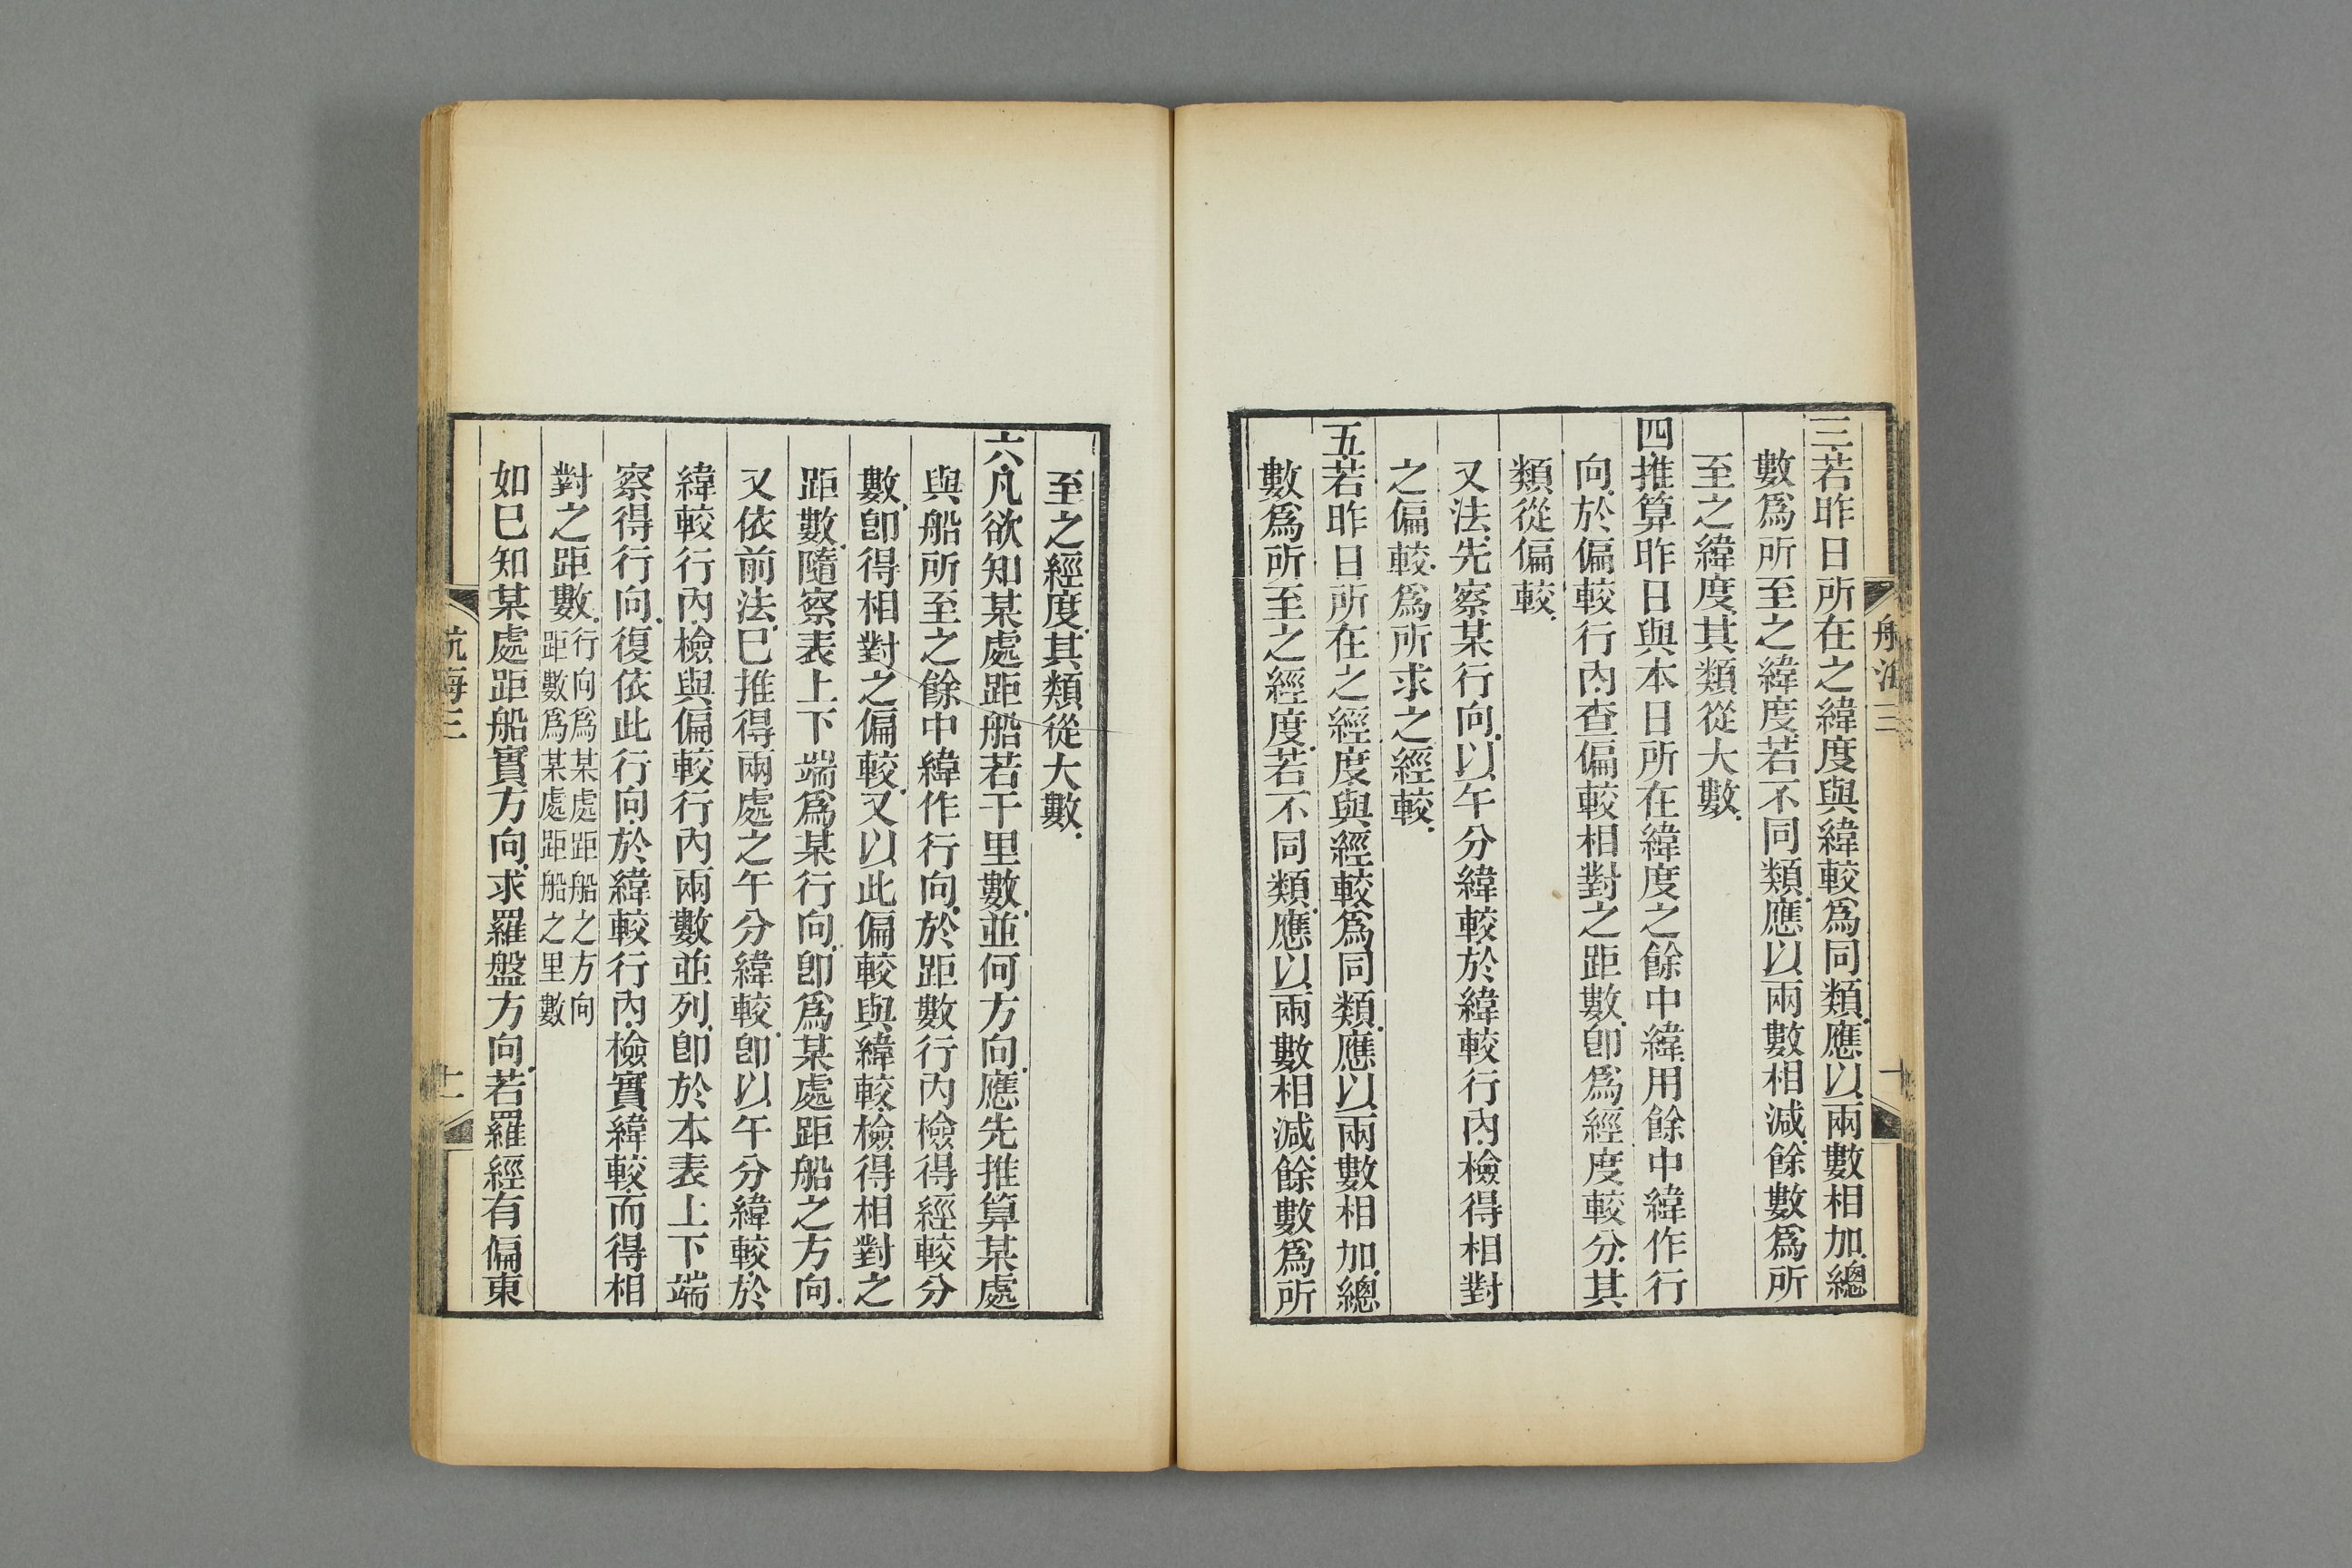 三若昨日所在之緯度與緯較爲同類應以兩數相加總
數爲所至之緯度若不同類應以兩數相減餘數爲所
至之緯度其類從大數
四推算昨日與本日所在緯度之餘中緯用餘中緯作行
向於偏較行內查偏較相對之距數卽爲經度較分其
類從偏較
又法先察某行向以午分緯較於緯較行內檢得相對
之偏較爲所求之經較
五若昨日所在之經度與經較爲同類應以兩數相加總
數爲所至之經度若不同類應以兩數相減餘數爲所
至之經度其類從大數
六凡欲知某處距船若干里數並何方向應先推算某處
與船所至之餘中緯作行向於距數行內檢得經較分
數卽得相對之偏較又以此偏較與緯較檢得相對之
距數隨察表上下端爲某行向卽爲某處距船之方向
又依前法已推得兩處之午分緯較卽以午分緯較於
緯較行內檢與偏較行內兩數並列卽於本表上下端
察得行向復依此行向於緯較行內檢實緯較而得相
對之距數行向爲某處距船之方向
距數爲某處距船之里數
如已知某處距船實方向求羅盤方向若羅經有偏東
航海三
十一